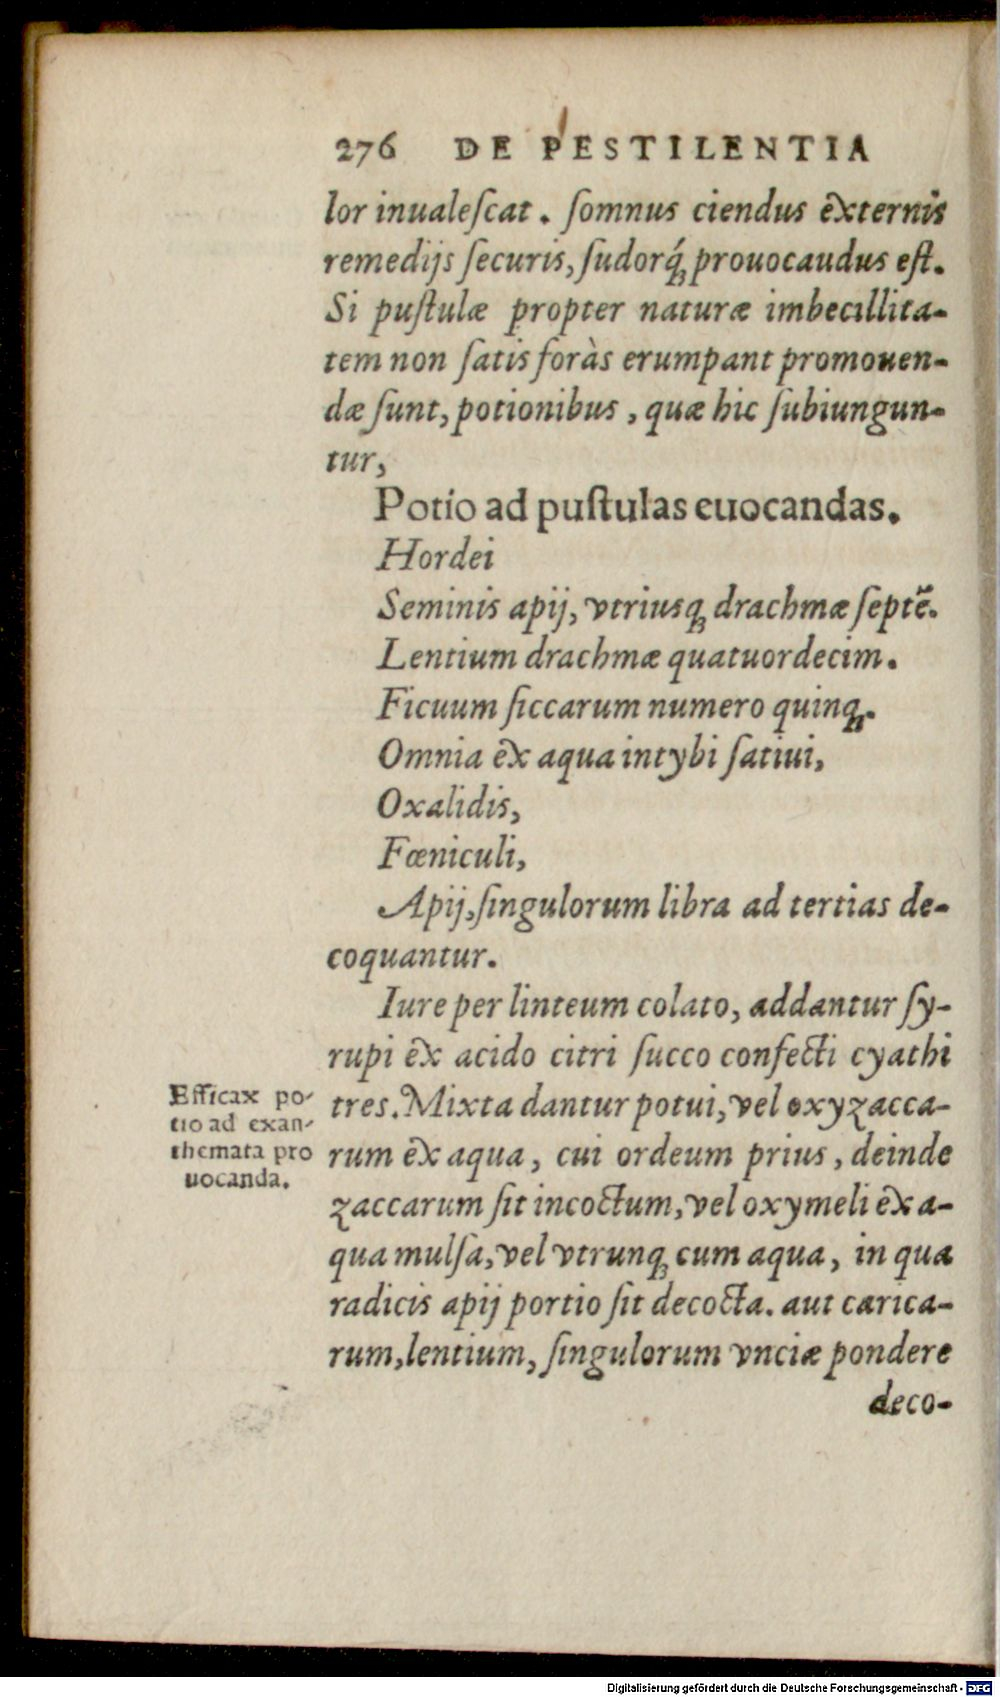 276 DE PESTILENTIA
lor inualeſcat. ſomnus ciendus externis
remedijs ſecuris, ſudorq́ꝫ prouocaudus eſt.
Si puſtulæ propter naturæ imbecillita-
tem non ſatis foràs erumpant promouen-
dæ ſunt, potionibus, quæ hic ſubiungun-
tur,
Potio ad puſtulas euocandas.
Hordei
Seminis apij, vtriusqꝫ drachmæ ſeptē.
Lentium drachmæ quatuordecim.
Ficuum ſiccarum numero quinqꝫ.
Omnia ex aqua intybi ſatiui,
Oxalidis,
Fœniculi,
Apij, ſingulorum libra ad tertias de-
coquantur.
Iure per linteum colato, addantur ſy-
rupi ex acido citri ſucco confecti cyathi
Efficax po-
tio ad exan-
themata pro
uocanda.
tres. Mixta dantur potui, vel oxyzacca-
rum ex aqua, cui ordeum prius, deinde
zaccarum ſit incoctum, vel oxymeli ex a-
qua mulſa, vel vtrunqꝫ cum aqua, in qua
radicis apij portio ſit decocta. aut carica-
rum, lentium, ſingulorum vnciæ pondere
deco-
Digitalisierung gefördert durch die Deutsche Forschungsgemeinschaft - DFG